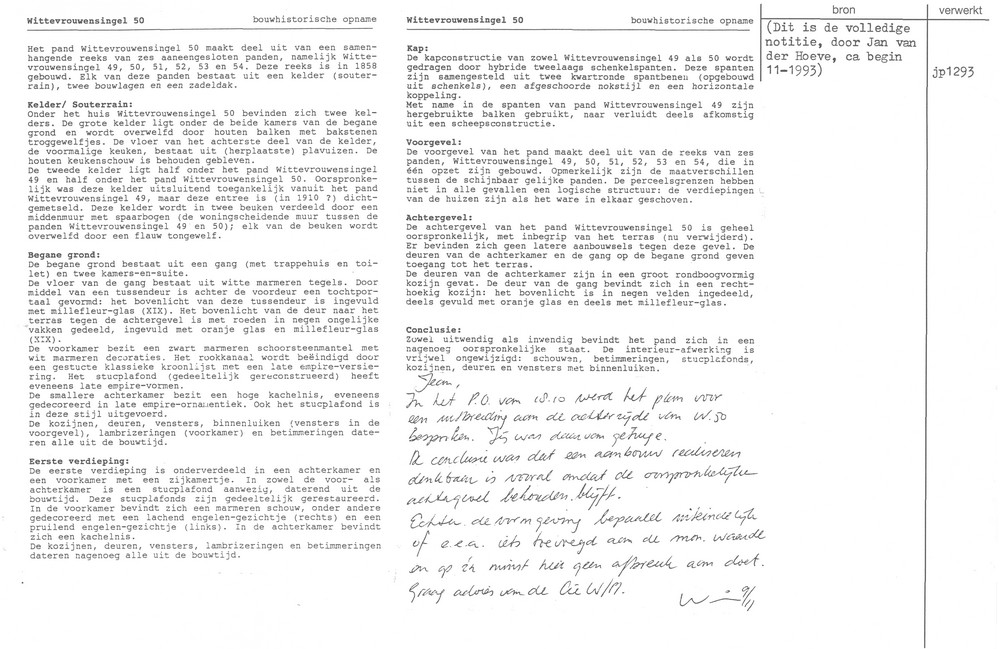 Wittevrouwensingel 50 bouwhistorische opname
Het pand Wittevrouwensingel 50 maakt deel uit van een samen-
hangende reeks van zes aaneengesloten panden, namelijk Witte-
vrouwensingel 49, 50, 51, 52, 53 en 54. Deze reeks is in 1858
gebouwd. Elk van deze panden bestaat uit een kelder (souter-
rain), twee bouwlagen en een zadeldak.
Kelder/ Souterrain:
Onder het huis Wittevrouwensingel 50 bevinden zich twee kel-
ders. De grote kelder ligt onder de beide kamers van de begane
grond en wordt overwelfd door houten balken met bakstenen
troggewelfjes. De vloer van het achterste deel van de kelder,
de voormalige keuken, bestaat uit (herplaatste) plavuizen. De
houten keukenschouw is behouden gebleven.
De tweede kelder ligt half onder het pand Wittevrouwensingel
49 en half onder het pand Wittevrouwensingel 50. Oorspronke-
lijk was deze kelder uitsluitend toegankelijk vanuit het pand
Wittevrouwensingel 49, maar deze entree is (in 1910 ?) dicht-
gemetseld. Deze kelder wordt in twee beuken verdeeld door een
middenmuur met spaarbogen (de woningscheidende muur tussen de
panden Wittevrouwensingel 49 en 50); elk van de beuken wordt
overwelfd door een flauw tongewelf.
Begane grond:
De begane grond bestaat uit een gang (met trappehuis en toi-
let) en twee kamers-en-suite.
De vloer van de gang bestaat uit witte marmeren tegels. Door
middel van een tussendeur is achter de voordeur een tochtpor-
taal gevormd: het bovenlicht van deze tussendeur is ingevuld
met millefleur-glas (XIX). Het bovenlicht van de deur naar het
terras tegen de achtergevel is met roeden in negen ongelijke
vakken gedeeld, ingevuld met oranje glas en millefleur-glas
(XIX).
De voorkamer bezit een zwart marmeren schoorsteenmantel met
wit marmeren decoraties. Het rookkanaal wordt beëindigd door
een gestucte klassieke kroonlijst met een late empire-versie-
ring. Het stucplafond (gedeeltelijk gereconstrueerd) heeft
eveneens late empire-vormen.
De smallere achterkamer bezit een hoge kachelnis, eveneens
gedecoreerd in late empire-ornamentiek. Ook het stucplafond is
in deze stijl uitgevoerd.
De kozijnen, deuren, vensters, binnenluiken (vensters in de
voorgevel), lambrizeringen (voorkamer) en betimmeringen date-
ren alle uit de bouwtijd.
Eerste verdieping:
De eerste verdieping is onderverdeeld in een achterkamer en
een voorkamer met een zijkamertje. In zowel de voor- als
achterkamer is een stucplafond aanwezig, daterend uit de
bouwtijd. Deze stucplafonds zijn gedeeltelijk gerestaureerd.
In de voorkamer bevindt zich een marmeren schouw, onder andere
gedecoreerd met een lachend engelen-gezichtje (rechts) en een
pruilend engelen-gezichtje (links). In de achterkamer bevindt
zich een kachelnis.
De kozijnen, deuren, vensters, lambrizeringen en betimmeringen
dateren nagenoeg alle uit de bouwtijd.
Wittevrouwensingel 50 bouwhistorische opname
Kap:
De kapconstructie van zowel Wittevrouwensingel 49 als 50 wordt
gedragen door hybride tweelaags schenkelspanten. Deze spanten
zijn samengesteld uit twee kwartronde spantbenen (opgebouwd
uit schenkels), een afgeschoorde nokstijl en een horizontale
koppeling.
Met name in de spanten van pand Wittevrouwensingel 49 zijn
hergebruikte balken gebruikt, naar verluidt deels afkomstig
uit een scheepsconstructie.
Voorgevel:
De voorgevel van het pand maakt deel uit van de reeks van zes
panden, Wittevrouwensingel 49, 50, 51, 52, 53 en 54, die in
één opzet zijn gebouwd. Opmerkelijk zijn de maatverschillen
tussen de schijnbaar gelijke panden. De perceelsgrenzen hebben
niet in alle gevallen een logische structuur: de verdiepingen
van de huizen zijn als het ware in elkaar geschoven.
Achtergevel:
De achtergevel van het pand Wittevrouwensingel 50 is geheel
oorspronkelijk, met inbegrip van het terras (nu verwijderd).
Er bevinden zich geen latere aanbouwsels tegen deze gevel. De
deuren van de achterkamer en de gang op de begane grond geven
toegang tot het terras.
De deuren van de achterkamer zijn in een groot rondboogvormig
kozijn gevat. De deur van de gang bevindt zich in een recht-
hoekig kozijn: het bovenlicht is in negen velden ingedeeld,
deels gevuld met oranje glas en deels met millefleur-glas.
Conclusie:
Zowel uitwendig als inwendig bevindt het pand zich in een
nagenoeg oorspronkelijke staat. De interieur-afwerking is
vrijwel ongewijzigd: schouwen, betimmeringen, stucplafonds,
kozijnen, deuren en vensters met binnenluiken.
In het P.O. van 18.10 werd het plan voor
een uitbreiding aan de achterzijde van W. 50
besproken. Jij was daarvan getuige.
De conclusie was dat een aanbouw realiseren
denkbaar is vooral omdat de oorspronkelijke
achtergevel behouden blijft.
Echter de vormgeving bepaald uiteindelijk
of e.e.a. iets toevoegt aan de mon. waarde
en op z'n minst hier geen afbreuk aan doet.
Graag advies van de Cie W/M.
9/11
bron
(Dit is de volledige
notitie, door Jan van
der Hoeve, ca begin
11-1993)
verwerkt
jp1293